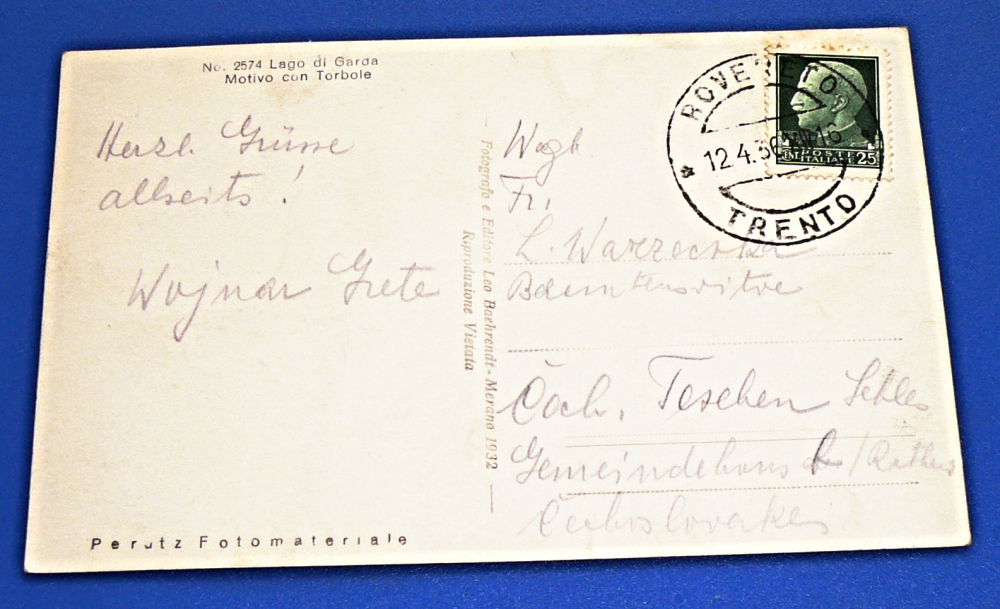 No. 2574 Lago di Garda
Motivo con Torbole
Herzl. Grüsse
allseits!
Wojnar Grete
Fotografo e Editore Leo Baehrendt - Merano 1932
Riproduzione Vietata
ROVERETO
12.4.36 XIV 16
TRENTO
POSTE
CENT ITALIANE 25
Fr.
L. Warzecska
Čech. Teschen Schles
Gemeindehaus
Perutz Fotomateriale